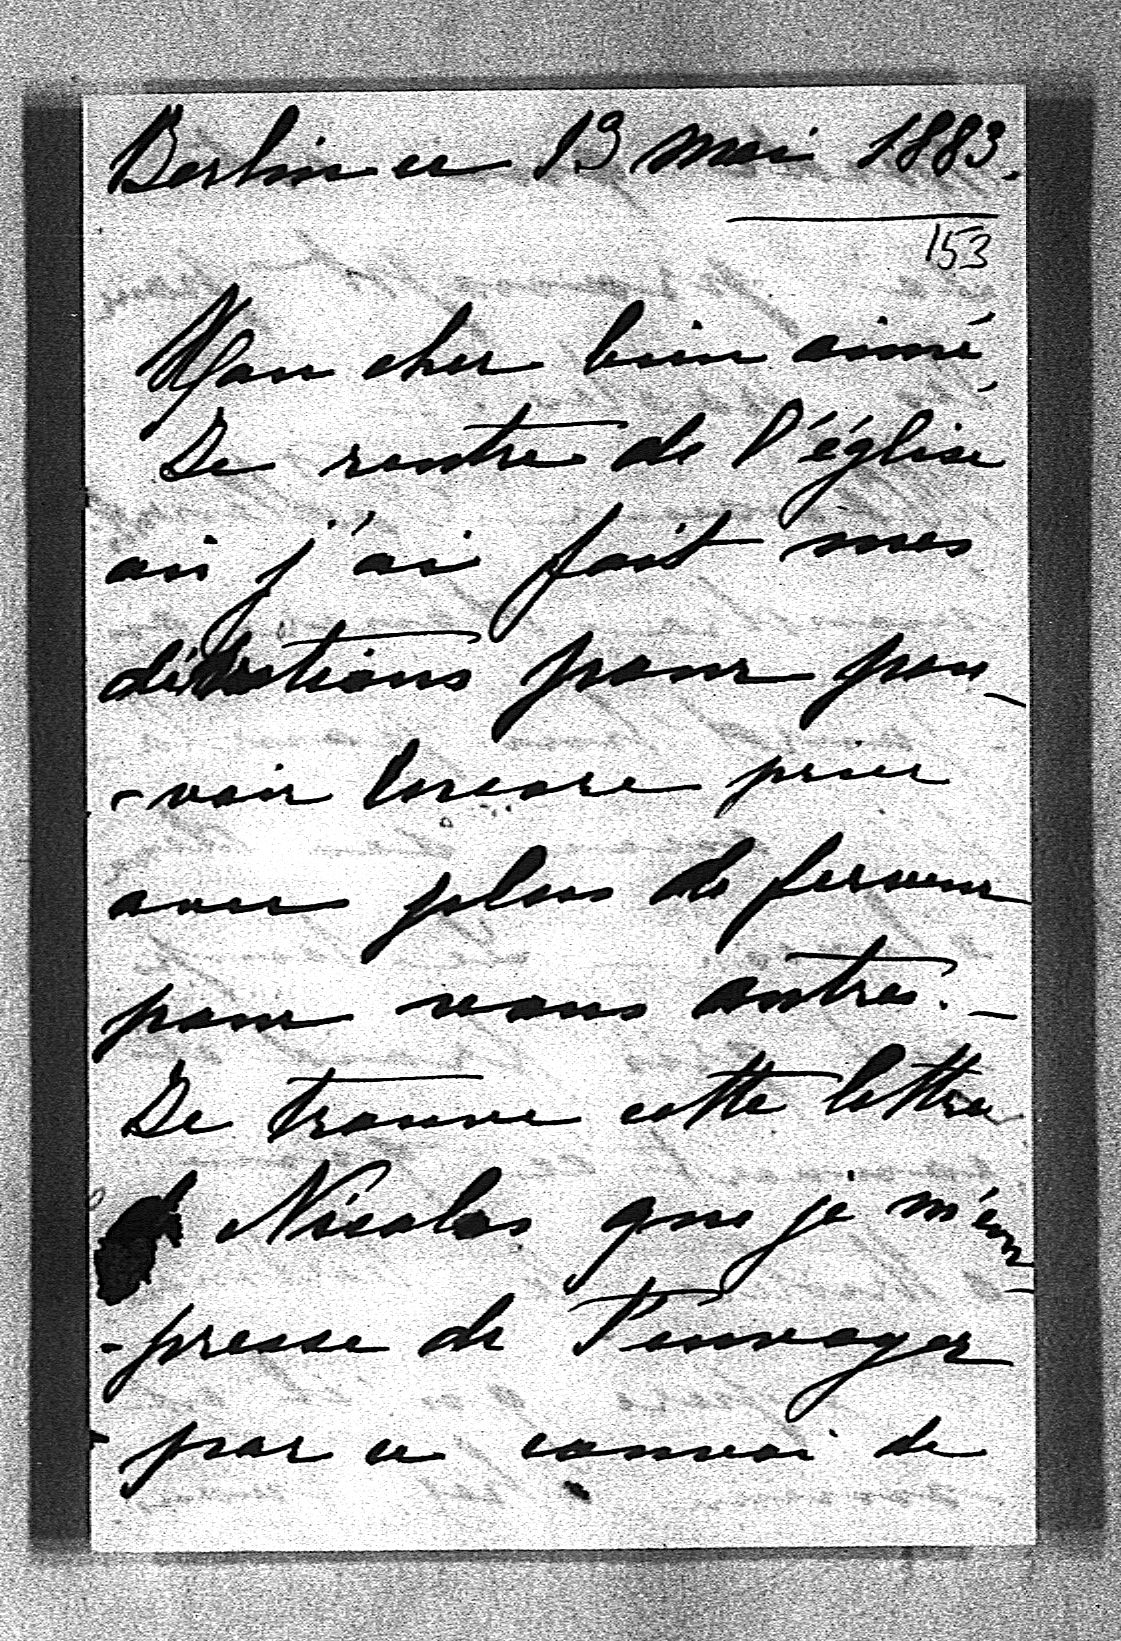 Berlin ce 13 mai 1883.
153
Mon cher bien aimé
Je rentre de l'église
où j'ai fait mes
dévotions pour pou
-voir encore prier
avec plus de ferveur
pour vous autres. —
Je trouve cette lettre
de Nicolas que je m'em
-presse de t'envoyer
par ce convoi de